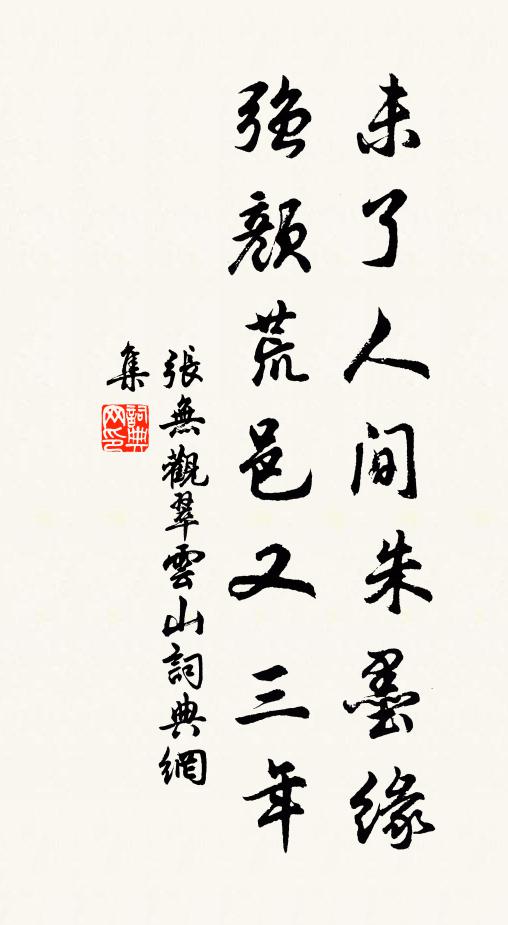 未了人间朱墨緣
強顏荒邑又三年
張無觀翠雲山詞典網
集
詞典
网印